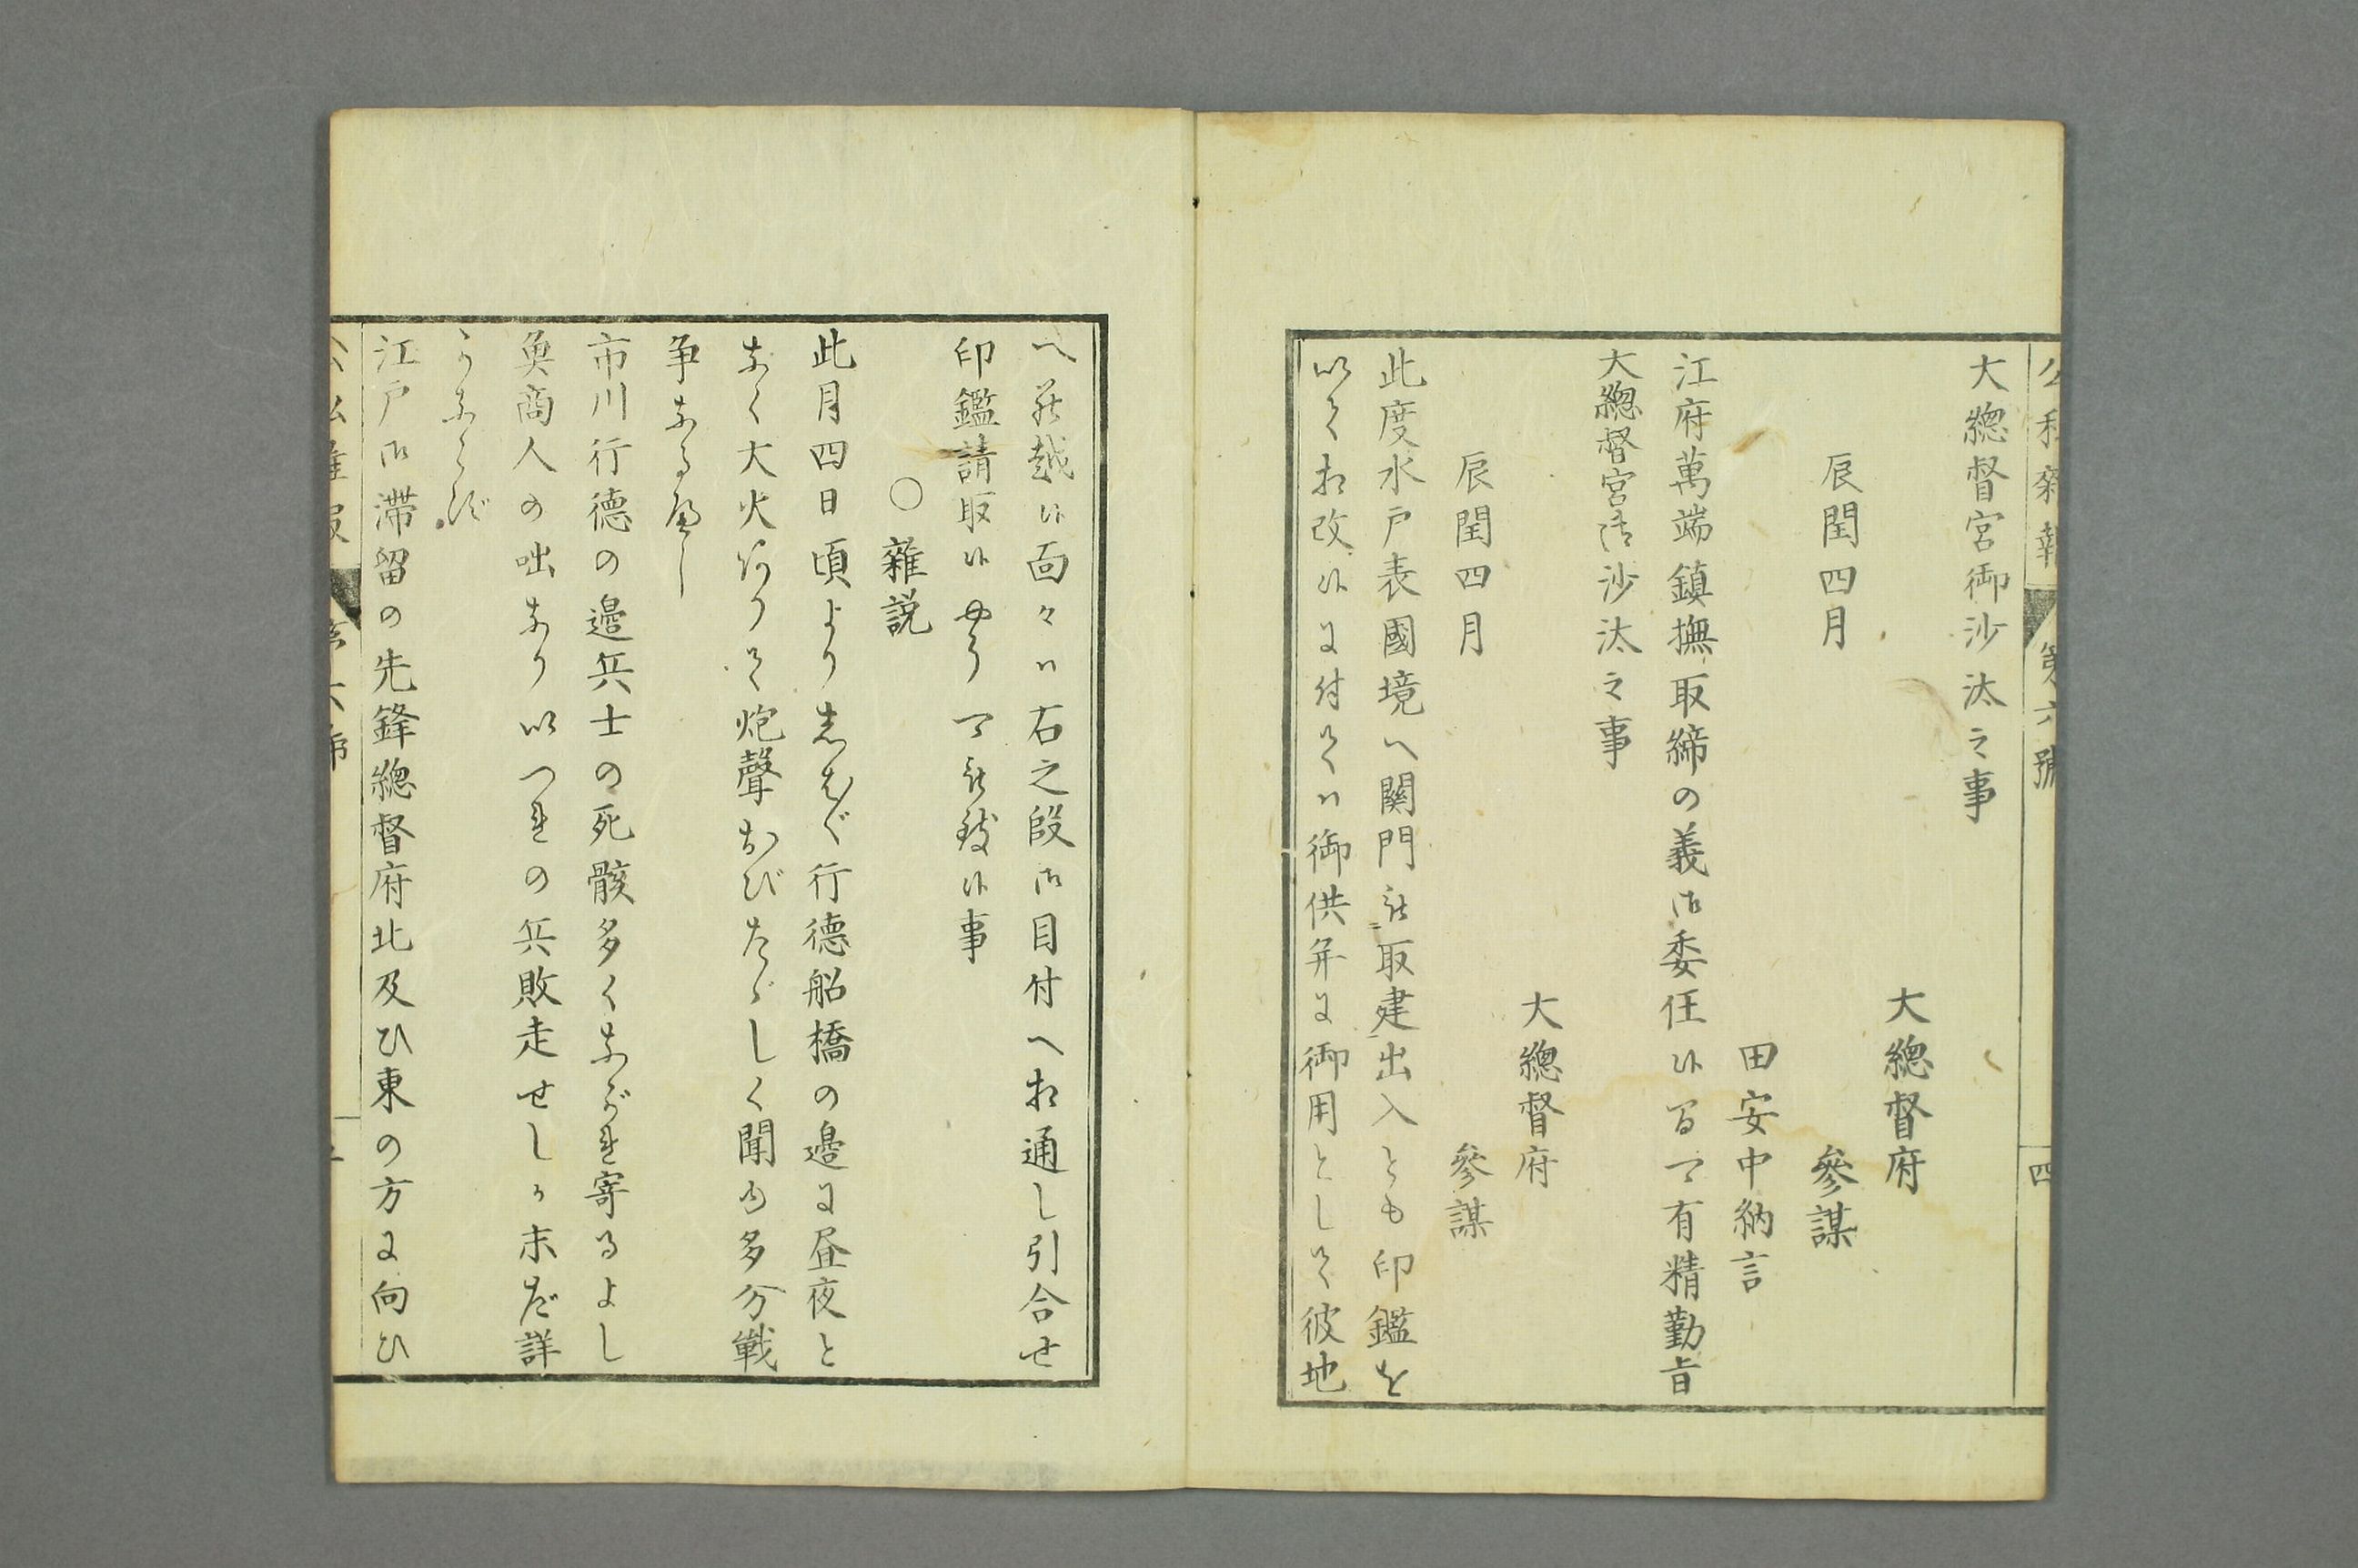 公私雑報 第六號 四
大總督宮御沙汰之事
大總督府
辰閏四月 參謀
田安中納言
江府萬端鎮撫取締の義御委任候間可有精勤旨
大總督宮御沙汰之事
大總督府
辰閏四月 參謀
此度水戸表國境へ関門被取建出入とも印鑑を
以て相改候に付てハ御供并に御用として彼地
へ罷越候面々ハ右之段御目付へ相通し引合せ
印鑑請取候やう可被致候事
〇雜説
此月四日頃より志ばゞ行徳船橋の邉に昼夜と
なく大火ありて炮聲おびたゞしく聞ゆ多分戦
争なるべし
市川行徳の邉兵士の死骸多くながれ寄るよし
魚商人の咄なりいつれの兵敗走せしか未だ詳
かならず
江戸御滞留の先鋒總督府北及ひ東の方に向ひ